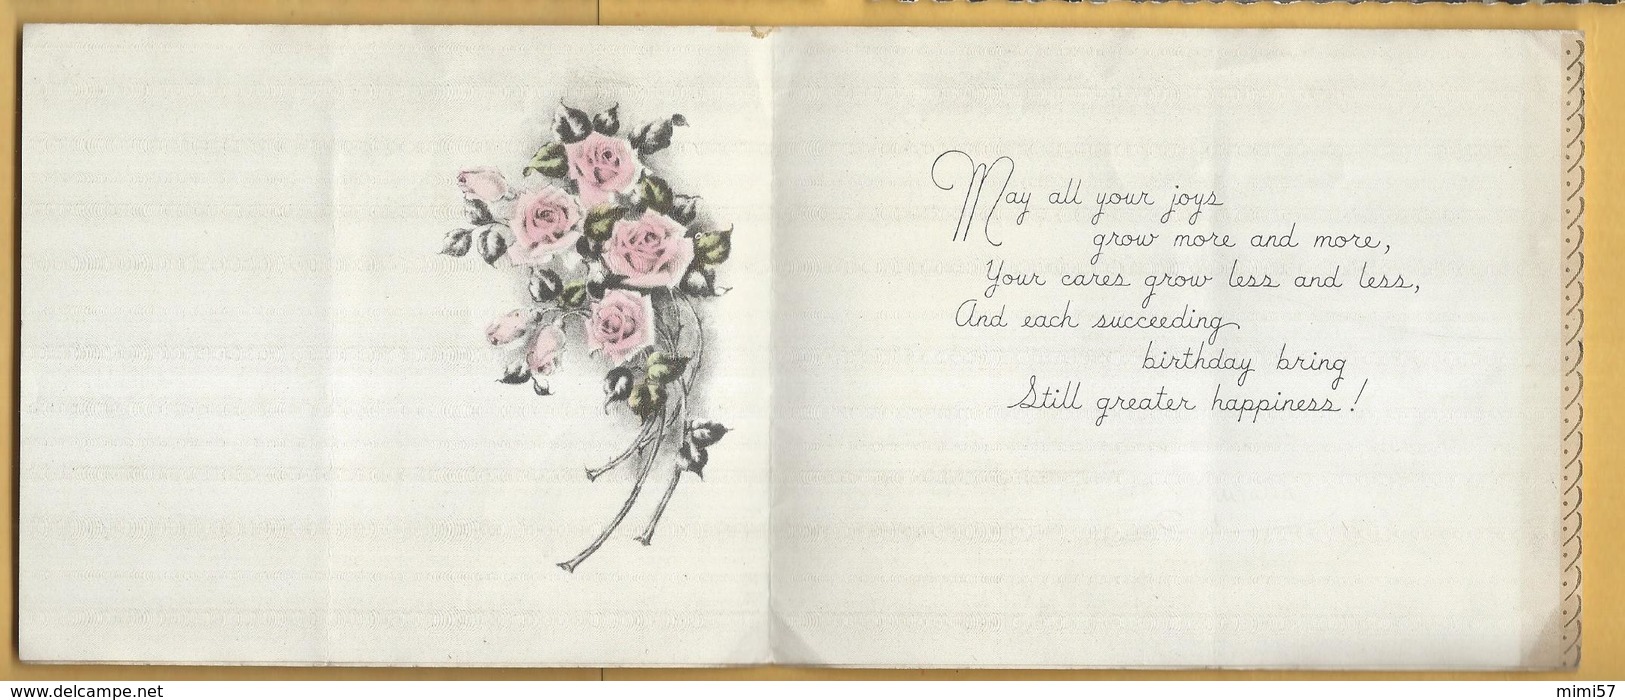 May all your joys
grow more and more,
Your cares grow less and less,
And each succeeding
birthday bring
Still greater happiness!
www.delcampe.net
mimi57